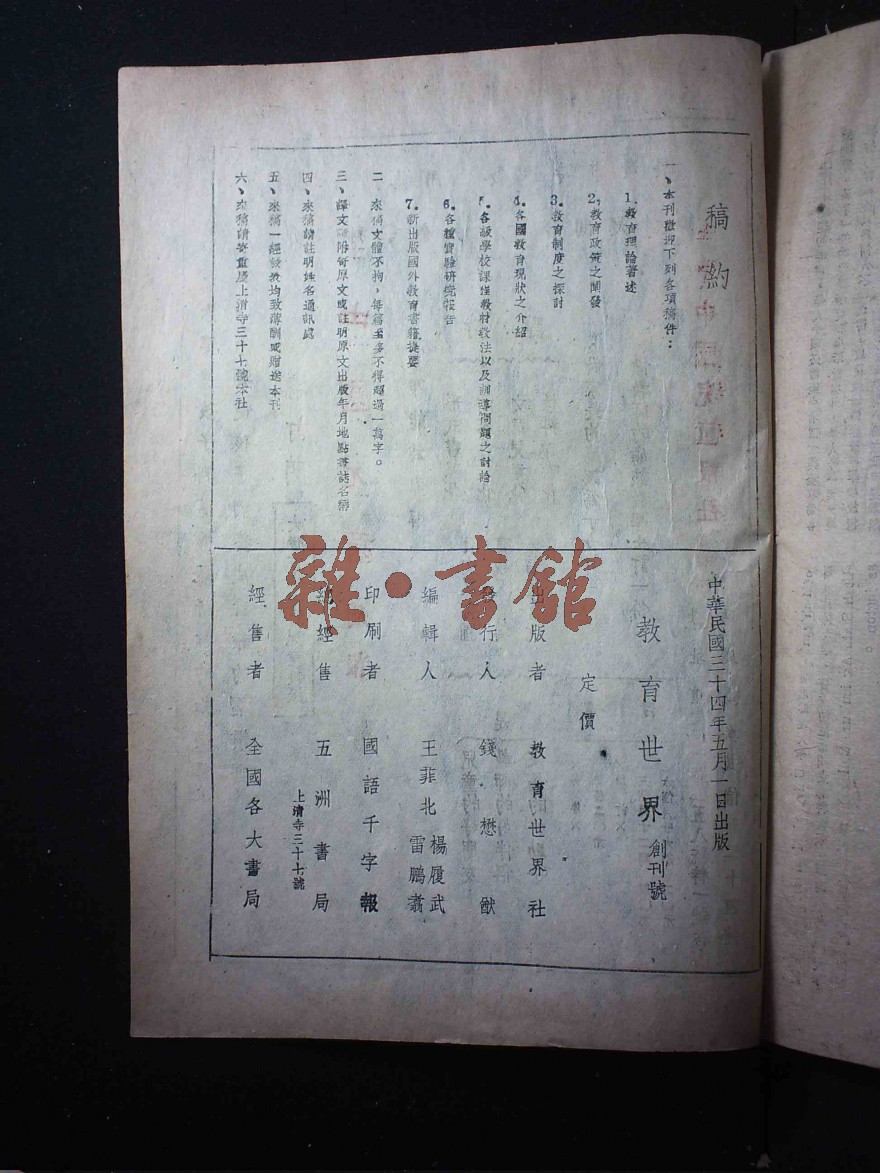 稿約
一、本刊歡迎下列各項稿件：
1.教育理論著述
2.教育政策之闡發
3.教育制度之探討
4.各國教育現狀之介紹
5.各級學校課程教材教法以及訓導問題之討論
6.各種實驗研究報告
7.新出版國外教育書籍提要
二、來稿文體不拘，每篇至多不得超過一萬字。
三、譯文請附寄原文或註明原文出版年月地點書誌名稱
四、來稿請註明姓名通訊處
五、來稿一經談教均致薄酬或贈送本刊
六、來稿請寄重慶上清寺三十七號本社
中華民國三十四年五月一日出版
教育世界 創刊號
定價
出版者 教育世界社
發行人 錢懋猷
編輯人 王菲北 楊履武 雷鵬翥
印刷者 國語千字報
總經售 五洲書局
上清寺三十七號
經售者 全國各大書局
雜·書館